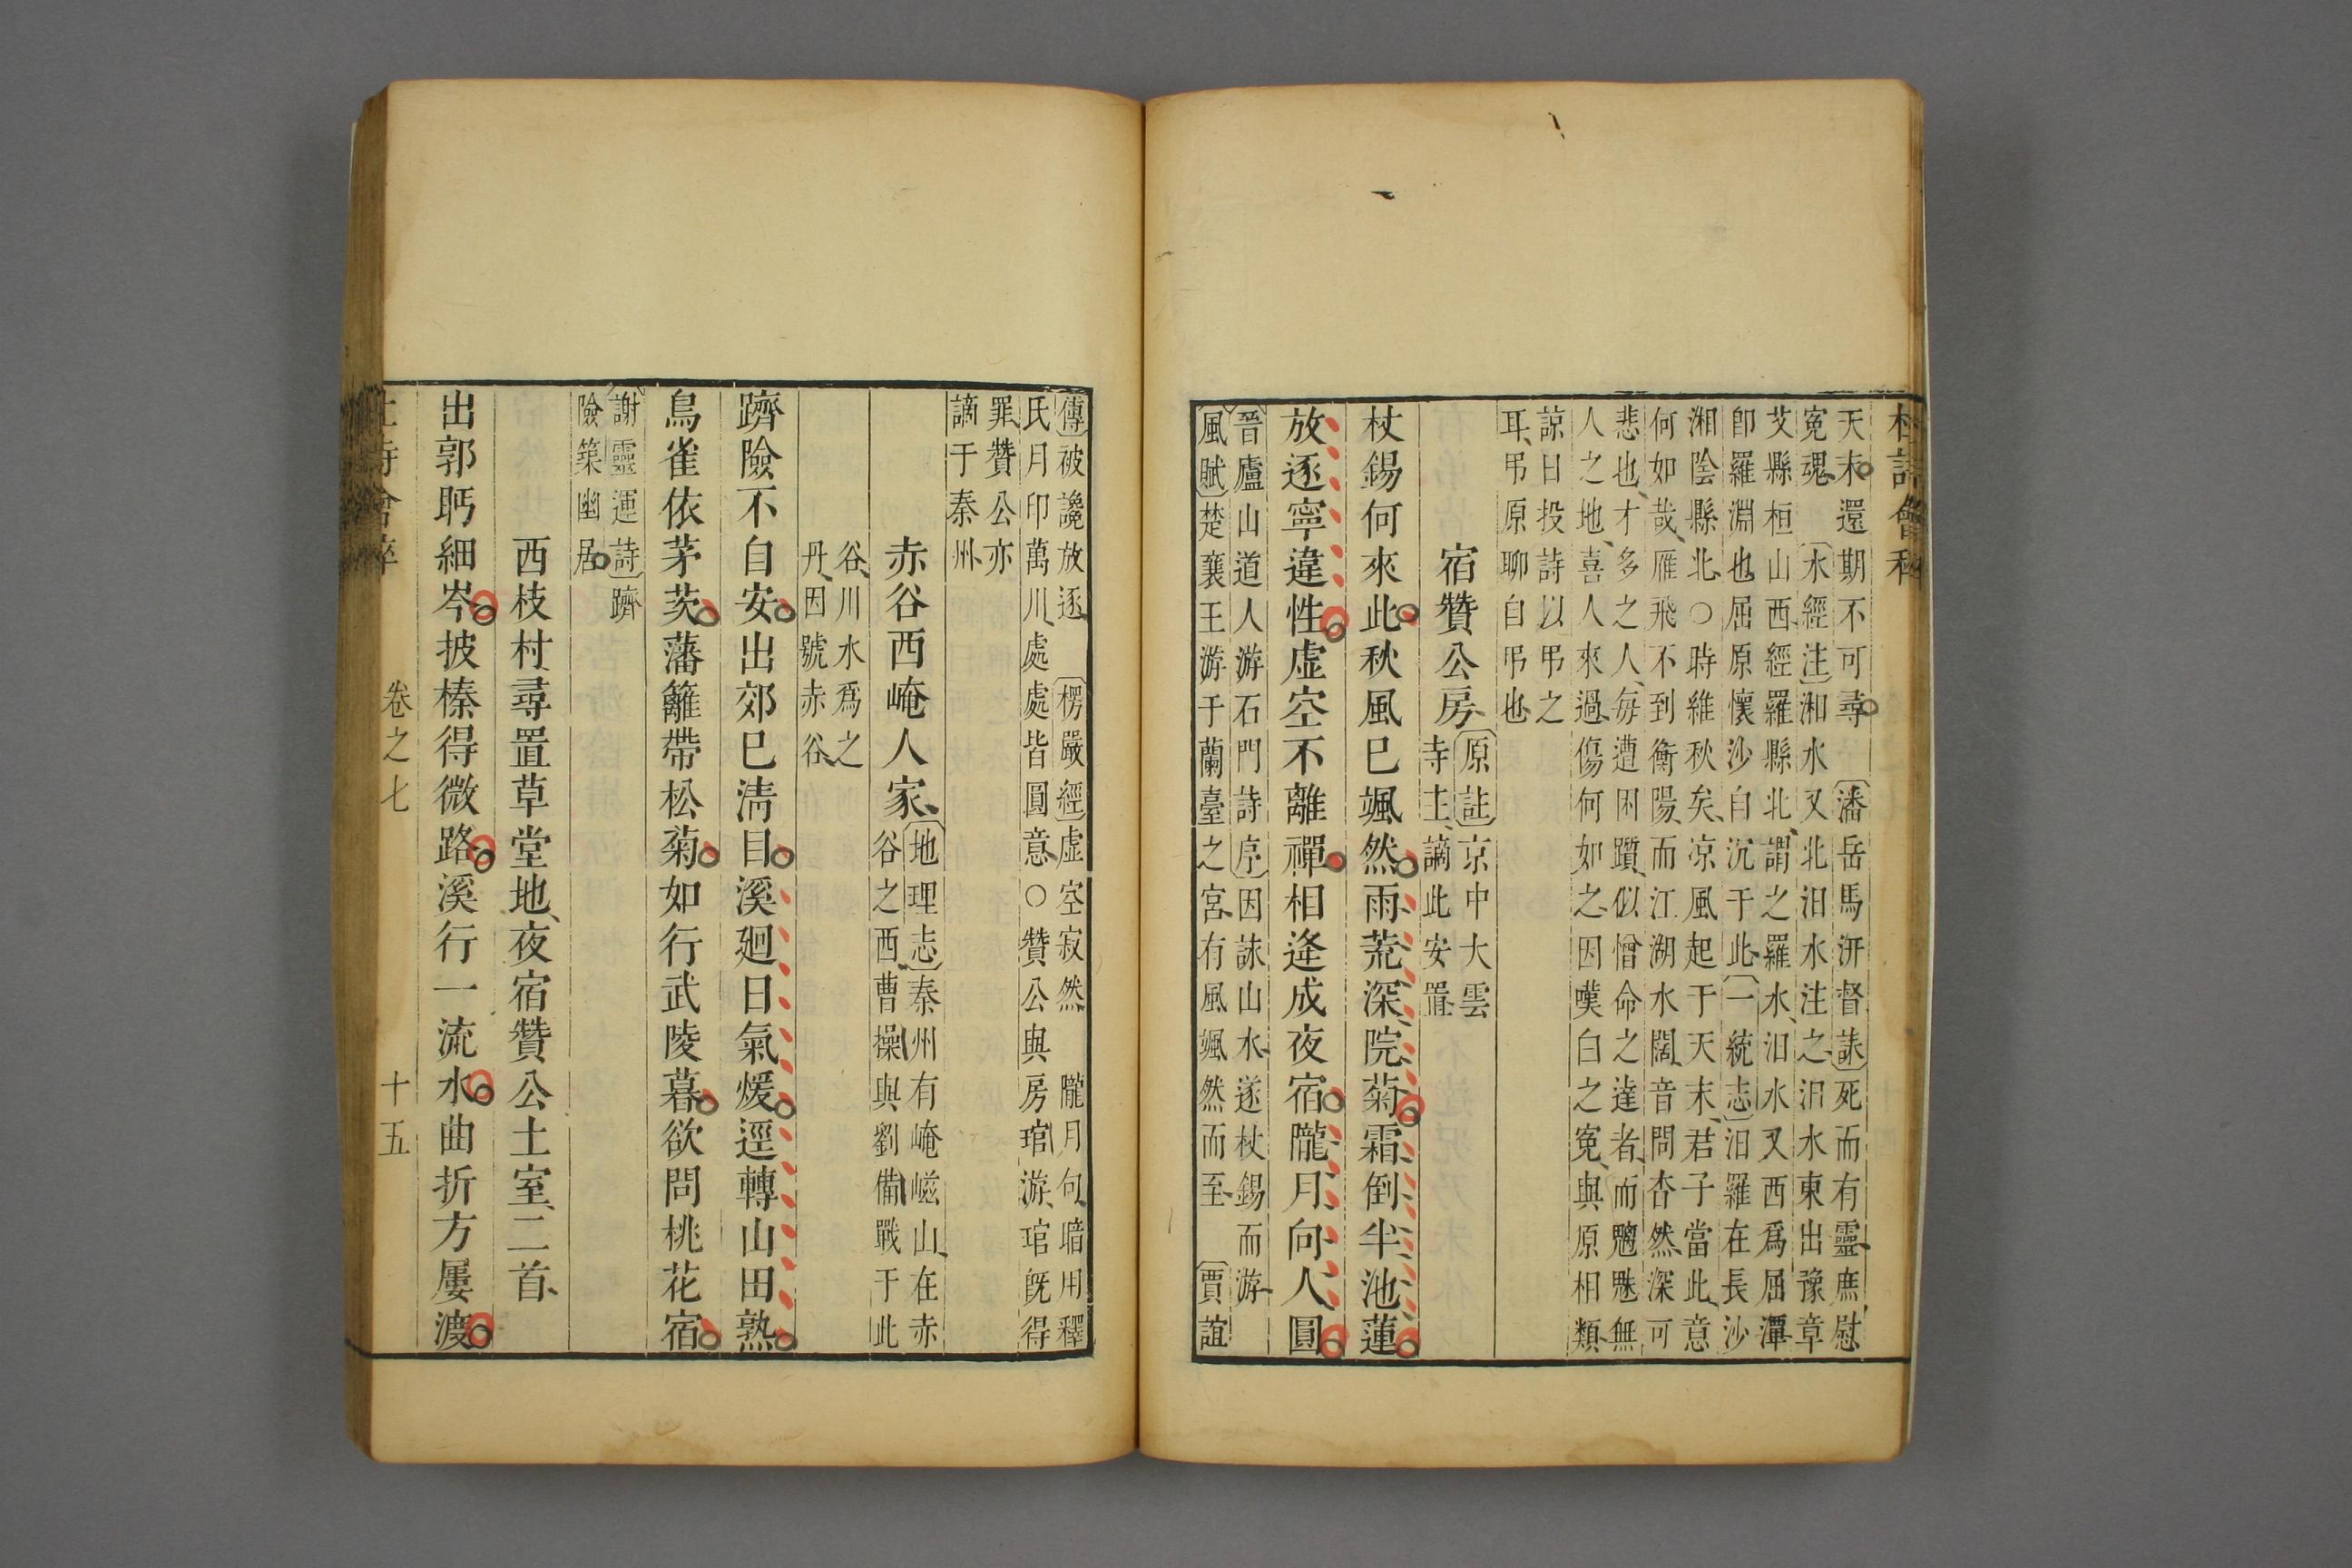 杜詩會稡
天末還期不可尋 潘岳馬汧督誄死而有靈庶慰
寃魂 水經注湘水又北汨水注之汨水東出豫章
艾縣桓山西經羅縣北謂之羅水汨水又西為屈潭
卽羅淵也屈原懷沙自沉于此一統志汨羅在長沙
湘陰縣北○時維秋矣凉風起于天末君子當此意
何如哉雁飛不到衡陽而江湖水闊音問杳然深可
悲也才多之人每遭困躓似憎命之達者而魍魎無
人之地喜人來過傷何如之因嘆白之寃與原相類
諒日投詩以弔之
耳弔原聊自弔也
宿贊公房 原註京中大雲
寺主謫此安置
杖錫何來此秋風已颯然雨荒深院菊霜倒半池蓮
放逐寧違性虛空不離禪相逢成夜宿隴月向人圓
晉廬山道人游石門詩序因詠山水遂杖錫而游
風賦楚襄王游于蘭臺之宮有風颯然而至 賈誼
傳被讒放逐 楞嚴經虛空寂然 隴月句暗用釋
氏月印萬川處處皆圓意○贊公與房琯游琯旣得
罪贊公亦
謫于秦州
赤谷西崦人家 地理志秦州有崦嵫山在赤
谷之西曹操與劉備戰于此
谷川水爲之
丹因號赤谷
躋險不自安出郊已淸目溪廻日氣煖逕轉山田熟
鳥雀依茅茨藩籬帶松菊如行武陵暮欲問桃花宿
謝靈運詩躋
險築幽居
西枝村尋置草堂地夜宿贊公土室二首
出郭眄細岑披榛得微路溪行一流水曲折方屢渡
杜詩會稡 卷之七 十五